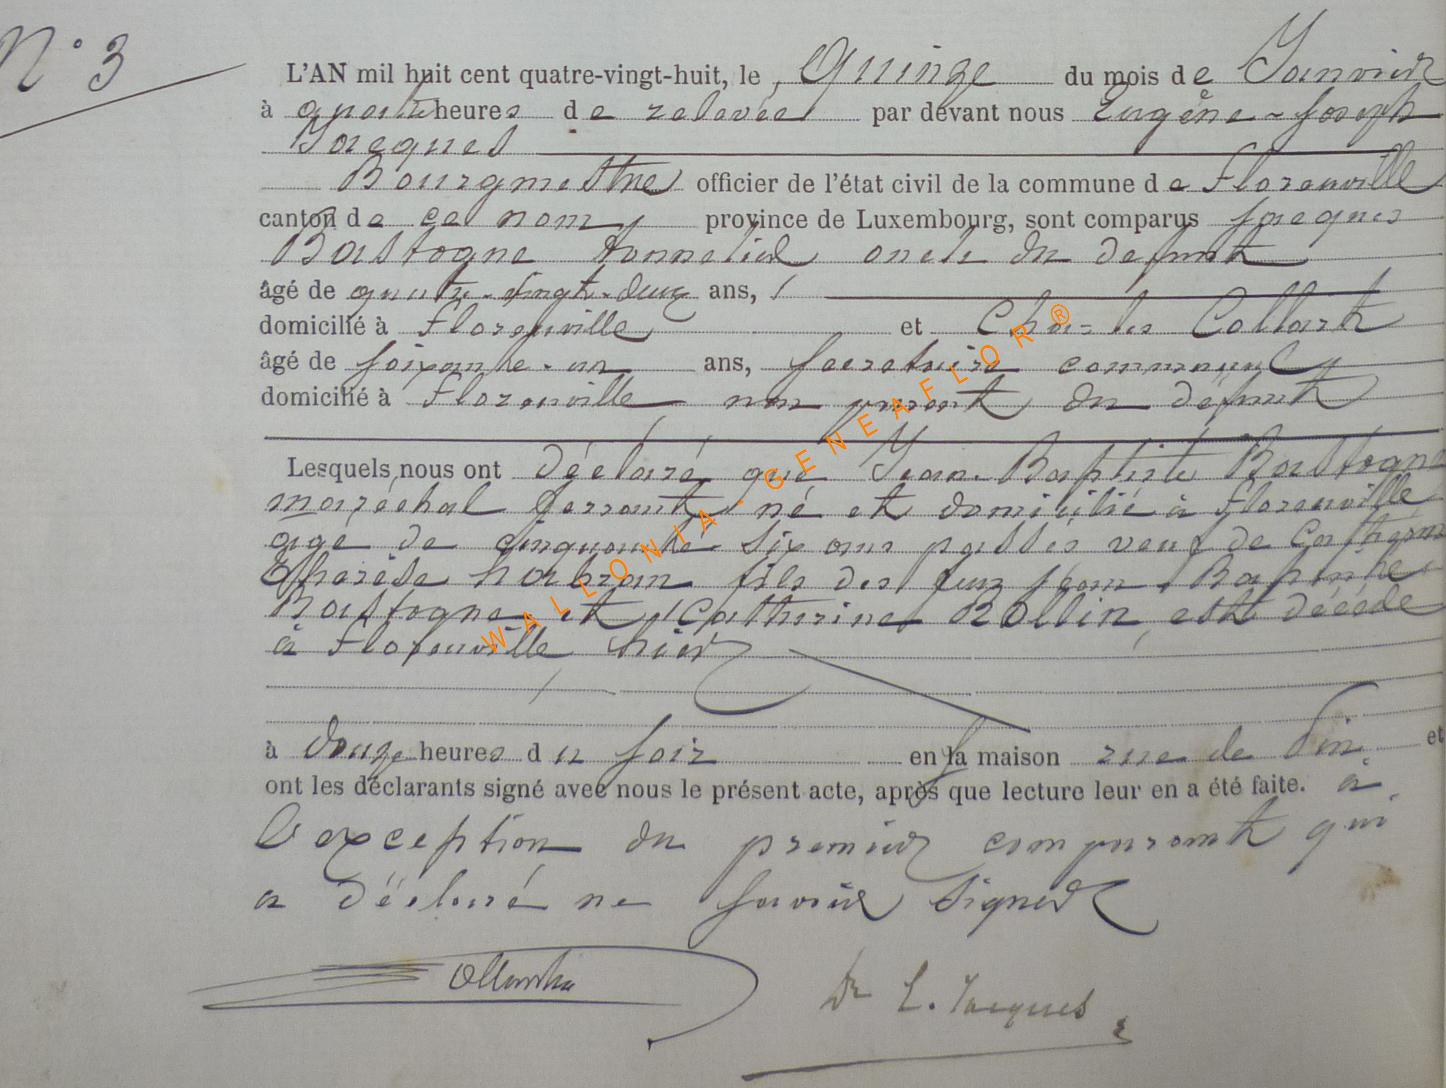 N° 3
L'AN mil huit cent quatre-vingt-huit, le Quinze du mois de Janvier
à quatre heures de relevée par devant nous Eugène-Joseph
Jacques
Bourgmestre officier de l'état civil de la commune de Florenville
canton de ce nom, province de Luxembourg, sont comparus Jacques
Bastogne tonnelier oncle du défunt
âgé de quatre-vingt-deux ans,
domicilié à Florenville et Charles Collart
âgé de soixante-un ans, secrétaire communal
domicilié à Florenville non parent du défunt
Lesquels nous ont déclaré que Jean-Baptiste Bastogne
maréchal ferrant né et domicilié à Florenville
agé de cinquante-six ans passés veuf de Catherine
Thérèse fils des feux Jean-Baptiste
Bastogne et Catherine Rollin est décédé
à Florenville hier
à douze heures du soir en la maison rue de et
ont les déclarants signé avec nous le présent acte, après que lecture leur en a été faite. à
l'exception du premier comparant qui
a déclaré ne savoir signer
Dr E. Jacques
WALLONIA - GENEAFLOR®